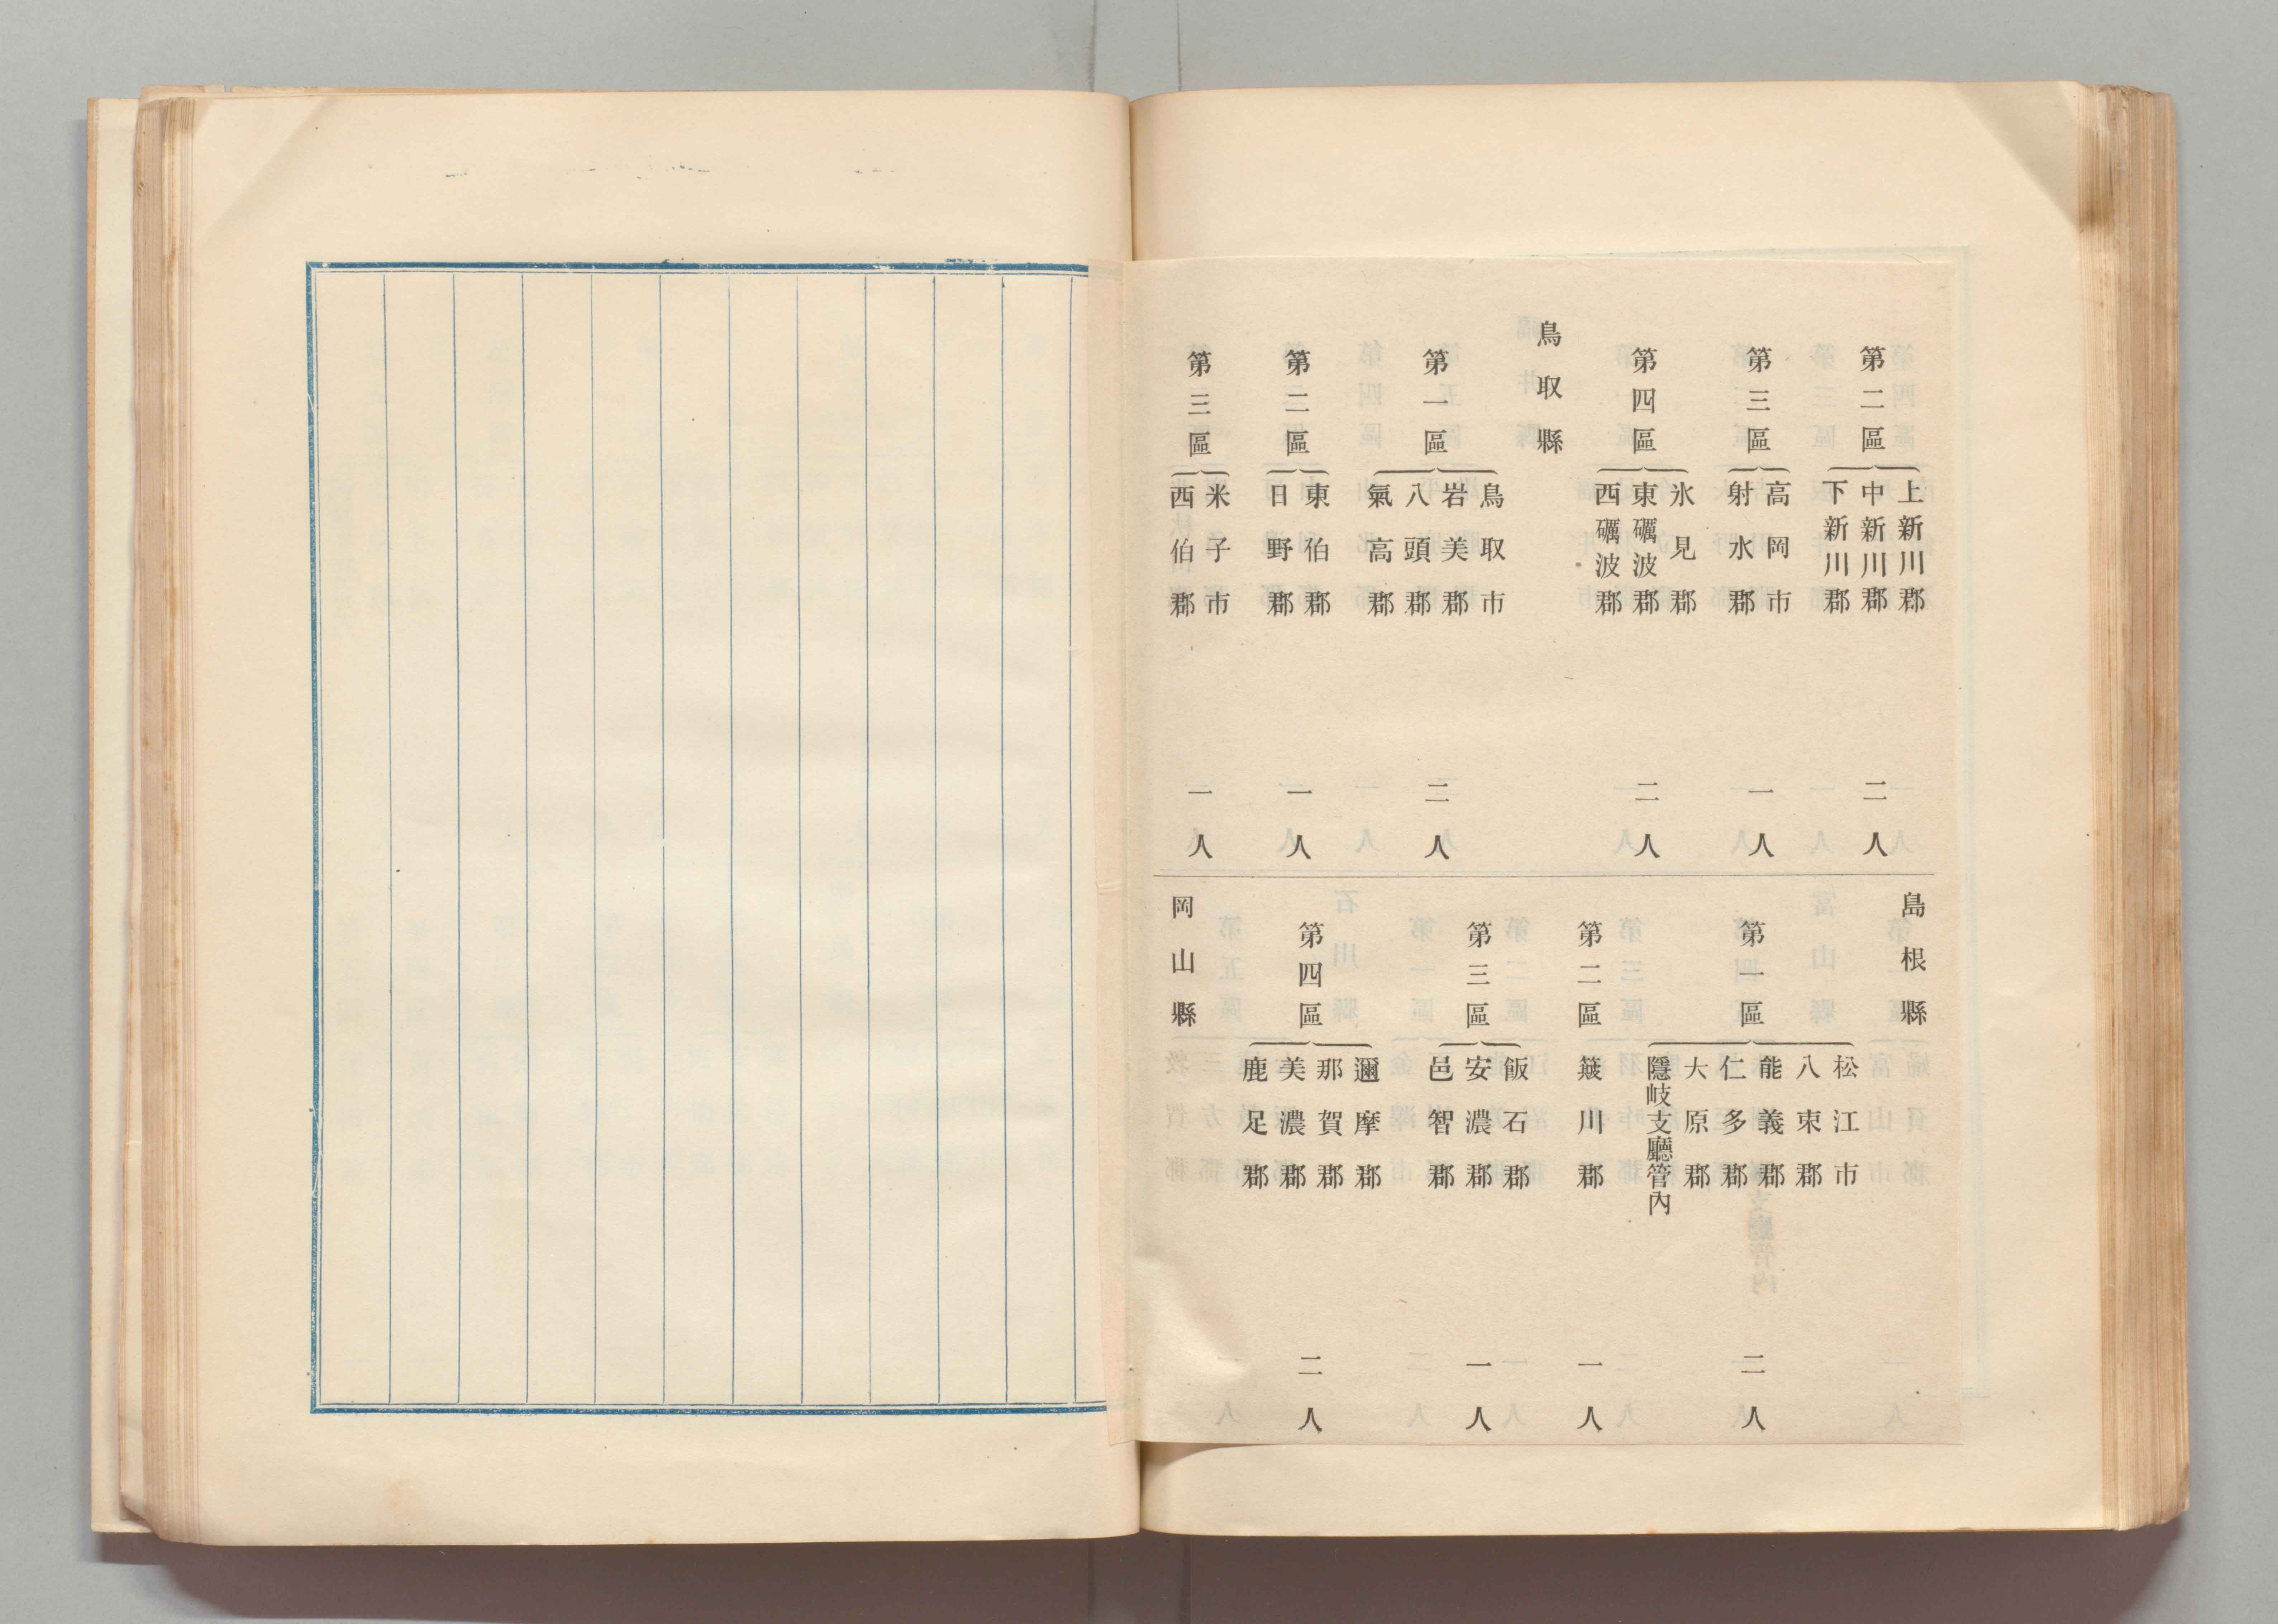 第二區
上新川郡
中新川郡
下新川郡
二人
第三區
高岡市
射水郡
一人
第四區
氷見郡
東礪波郡
西礪波郡
二人
鳥取縣
第一區
鳥取市
岩美郡
八頭郡
氣高郡
二人
第二區
東伯郡
日野郡
一人
第三區
米子市
西伯郡
一人
島根縣
第一區
松江市
八束郡
能義郡
仁多郡
大原郡
隱岐支廳管內
二人
第二區
簸川郡
一人
第三區
飯石郡
安濃郡
邑智郡
一人
第四區
邇摩郡
那賀郡
美濃郡
鹿足郡
二人
岡山縣